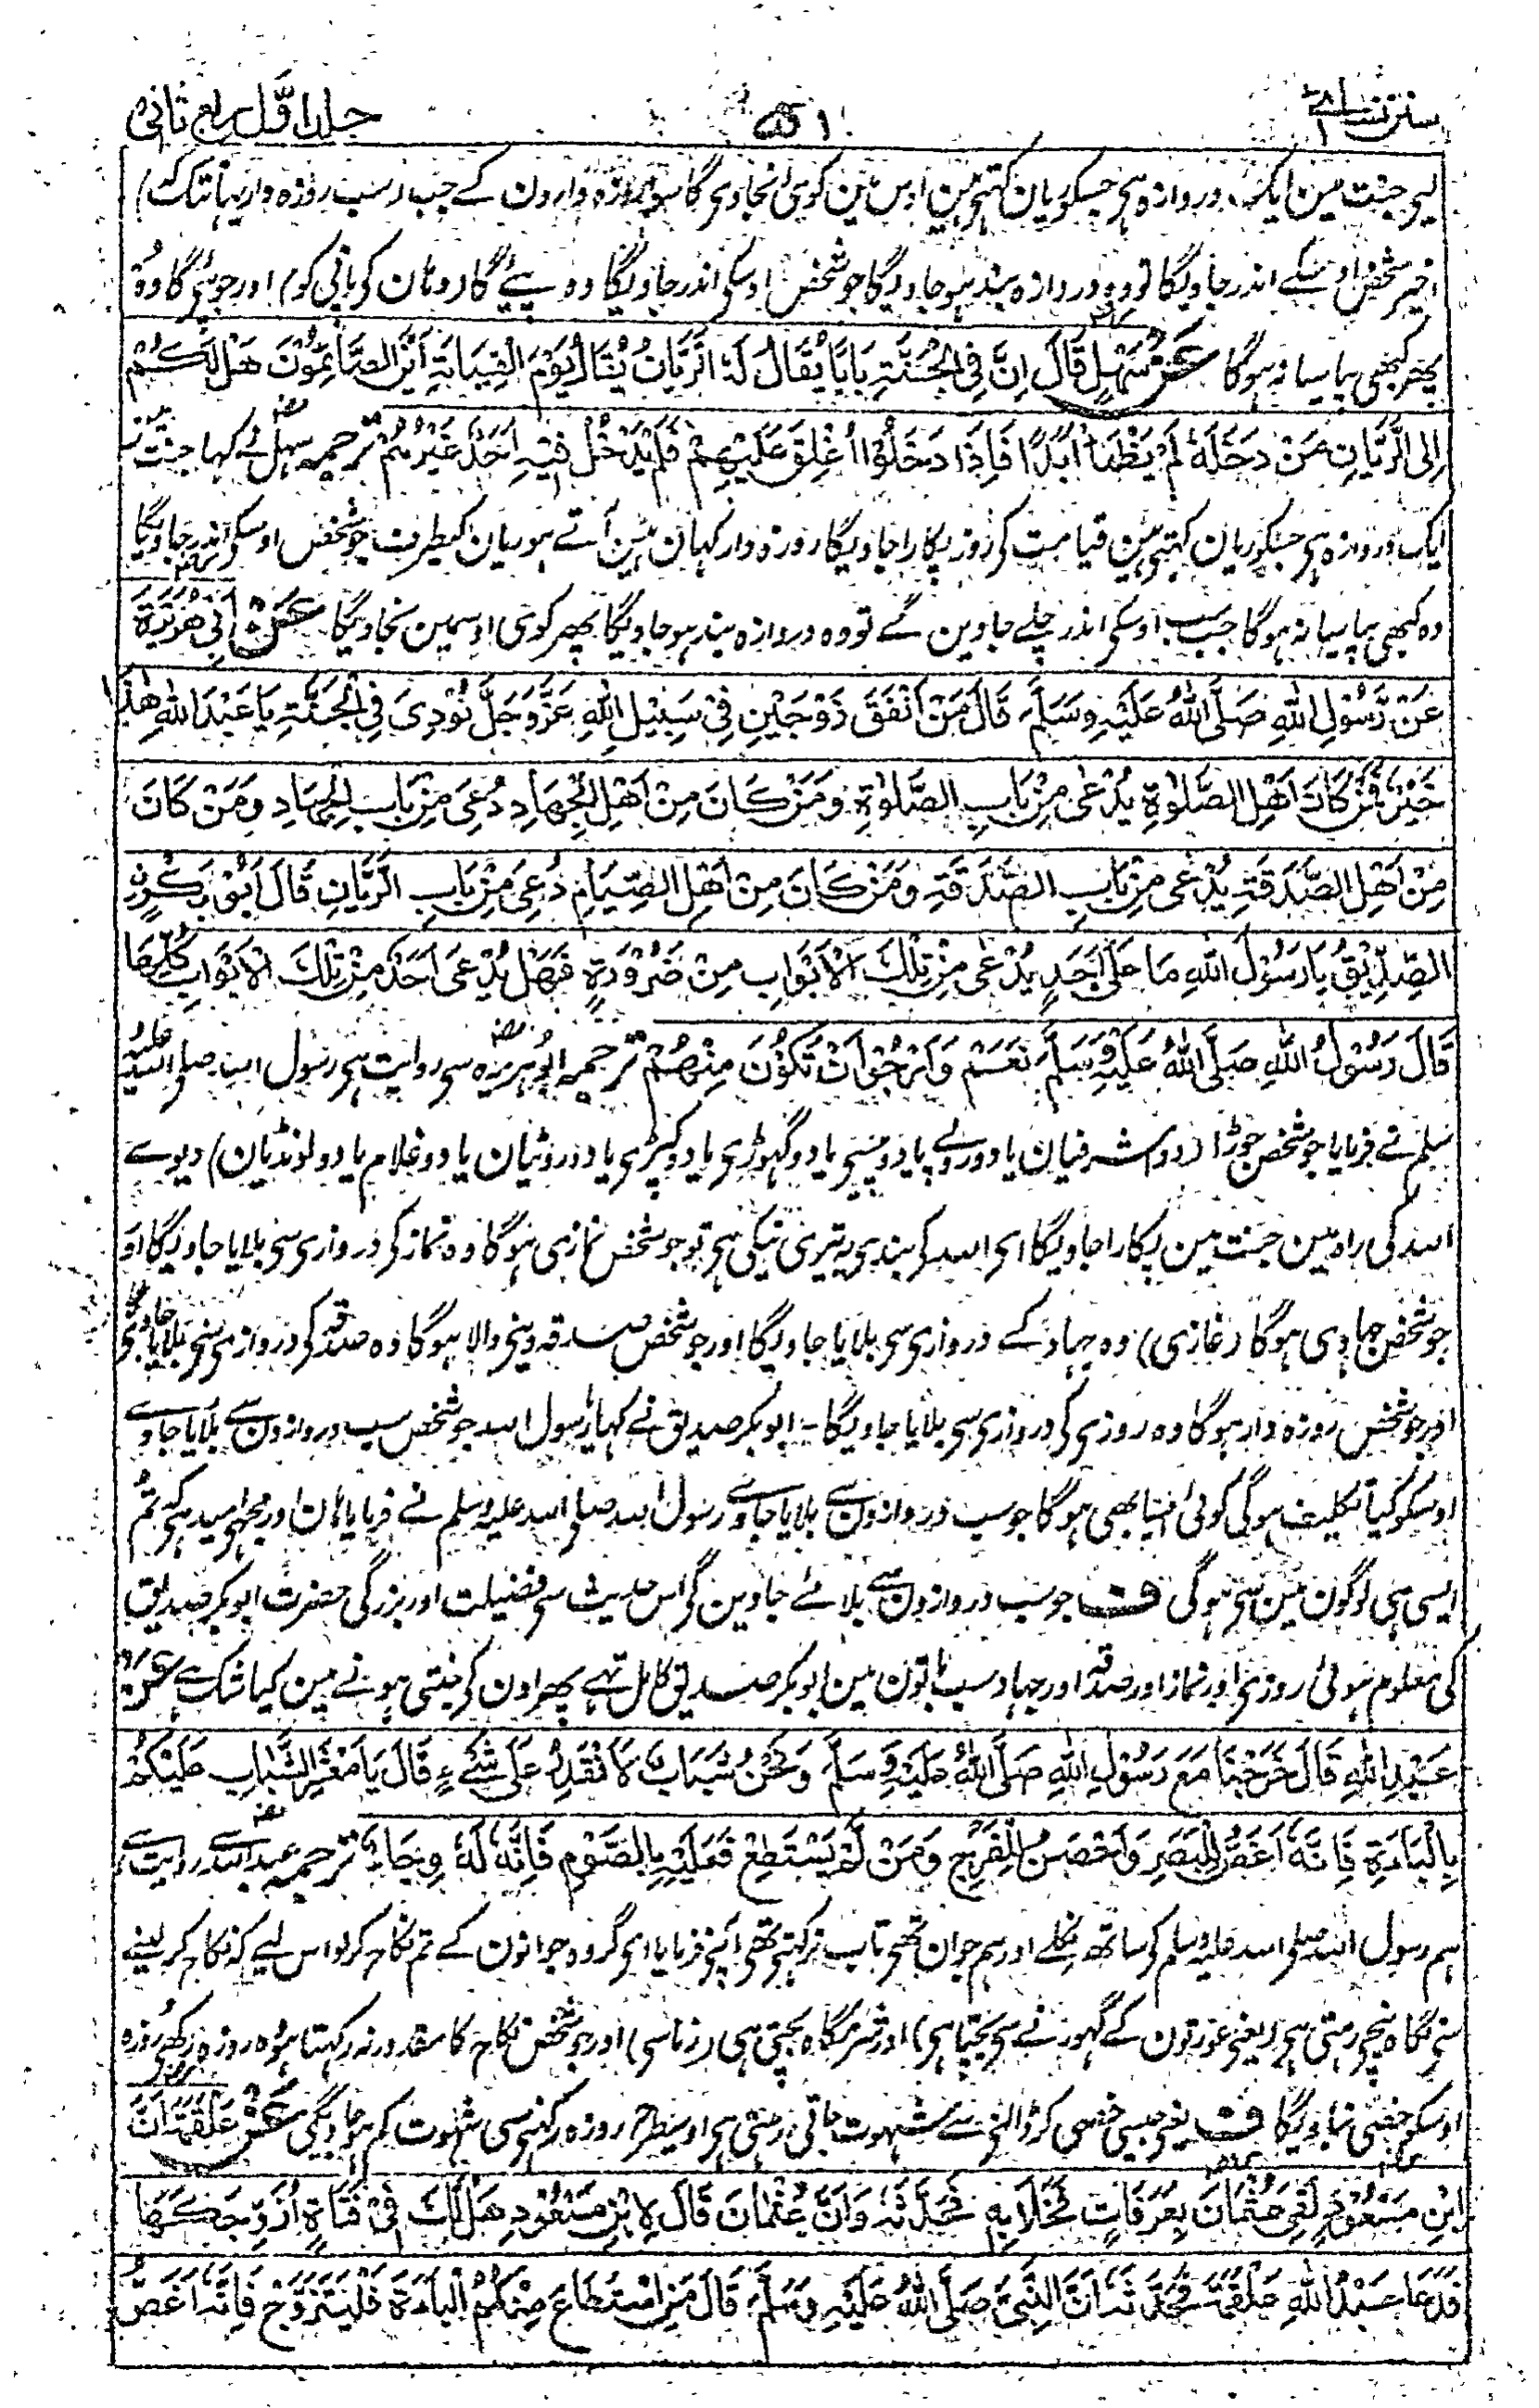 سنن نسائی
جلد اول ربع ثانی
لیے جنت مین ایک دروازہ ہی جسکو ریان کہتی ہین اوس مین کوی نجاوی گا سوا روزہ دارون کے جب سب روزہ دار یہانتک کہ)
اخیر شخص اوسکے اندر جاویگا تو وہ دروازہ بند ہو جاویگا جو شخص اوسکی اندر جاویگا وہ پیئے گا (وہان کی پانی کو) اور جو پئیگا وہ
پھر کبھی پیاسا نہ ہوگا عَنْ سَهْلٍ قَالَ اِنَّ فِی الْجَنَّةِ بَابًا یُقَالُ لَهُ الرَّیَّانُ یُقَالُ یَوْمَ الْقِیَامَةِ اَیْنَ الصَّائِمُوْنَ هَلْ لَکُمْ
اِلَی الرَّیَّانِ مَنْ دَخَلَهُ لَمْ یَظْمَأْ اَبَدًا فَاِذَا دَخَلُوْا اُغْلِقَ عَلَیْهِمْ فَلَمْ یَدْخُلْ فِیْهِ اَحَدٌ غَیْرُهُمْ ترجمہ سہل نے کہا جنت مین
ایک دروازہ ہی جسکو ریان کہتی ہین قیامت کی روز پکارا جاویگا روزہ دار کہان ہین آتے ہو ریان کیطرف جو شخص اوسکی اندر جاویگا
وہ کبھی پیاسا نہ ہوگا جب سب اوسکی اندر چلے جاوین گے تو وہ دروازہ بند ہو جاویگا پھر کوی اوسمین نجاویگا عَنْ اَبِی هُرَیْرَةَ
عَنْ رَّسُوْلِ اللهِ صَلَّی اللهُ عَلَیْهِ وَسَلَّمَ قَالَ مَنْ اَنْفَقَ زَوْجَیْنِ فِیْ سَبِیْلِ اللهِ عَزَّ وَجَلَّ نُوْدِیَ فِی الْجَنَّةِ یَا عَبْدَ اللهِ هٰذَا
خَیْرٌ فَمَنْ کَانَ اَهْلِ الصَّلٰوةِ یُدْعٰی مِنْ بَابِ الصَّلٰوةِ وَمَنْ کَانَ مِنْ اَهْلِ الْجِهَادِ دُعِیَ مِنْ بَابِ الْجِهَادِ وَمَنْ کَانَ
مِنْ اَهْلِ الصَّدَقَةِ یُدْعٰی مِنْ بَابِ الصَّدَقَةِ وَمَنْ کَانَ مِنْ اَهْلِ الصِّیَامِ دُعِیَ مِنْ بَابِ الرَّیَّانِ قَالَ اَبُوْ بَکْرٍ
الصِّدِّیْقُ یَا رَسُوْلَ اللهِ مَا عَلٰی اَحَدٍ یُدْعٰی مِنْ تِلْكَ الْاَبْوَابِ مِنْ ضَرُوْرَةٍ فَهَلْ یُدْعٰی اَحَدٌ مِنْ تِلْكَ الْاَبْوَابِ کُلِّهَا
قَالَ رَسُوْلُ اللهِ صَلَّی اللهُ عَلَیْهِ وَسَلَّمَ نَعَمْ وَاَرْجُوْ اَنْ تَکُوْنَ مِنْهُمْ ترجمہ ابوہریرہ سی روایت ہی رسول اللہ صلی اللہ علیہ
وسلم نے فرمایا جو شخص جوڑا (دو اشرفیان یا دو روپے یا دو پیسے یا دو گھوڑی یا دو کپڑی یا دو روٹیان یا دو غلام یا دو لونڈیان) دیوے
اللہ کی راہ مین جنت مین پکارا جاویگا ای اللہ کی بندی یہ تیری نیکی ہی تو جو شخص نمازی ہوگا وہ نماز کی دروازی سی بلایا جاویگا اور
جو شخص جہادی ہوگا (غازی) وہ جہاد کے دروازی سی بلایا جاویگا اور جو شخص صدقہ دینی والا ہوگا وہ صدقہ کی دروازی سی بلایا جاویگا
اور جو شخص روزہ دار ہوگا وہ روزی کی دروازی سی بلایا جاویگا۔ ابوبکر صدیق نے کہا یا رسول اللہ جو شخص سب دروازون سے بلایا جاوے
اوسکو کیا تکلیف ہوگی کوئی ایسا بھی ہوگا جو سب دروازون سے بلایا جاوے رسول اللہ صلی اللہ علیہ وسلم نے فرمایا ہان اور مجھی امید ہی کہ تم
ایسی ہی لوگون مین سی ہوگی ف جو سب دروازون سے بلائے جاوین گی اس حدیث سی فضیلت اور بزرگی حضرت ابوبکر صدیق
کی معلوم ہوئی روزی اور نماز اور صدقہ اور جہاد سب باتون مین ابوبکر صدیق کامل تھے پھر اون کی جنتی ہونے مین کیا شک ہے عَنْ
عَبْدِ اللهِ قَالَ خَرَجْنَا مَعَ رَسُوْلِ اللهِ صَلَّی اللهُ عَلَیْهِ وَسَلَّمَ وَنَحْنُ شَبَابٌ لَا نَقْدِرُ عَلٰی شَیْءٍ قَالَ یَا مَعْشَرَ الشَّبَابِ عَلَیْکُمْ
بِالْبَاءَةِ فَاِنَّهُ اَغَضُّ لِلْبَصَرِ وَاَحْصَنُ لِلْفَرْجِ وَمَنْ لَمْ یَسْتَطِعْ فَعَلَیْهِ بِالصَّوْمِ فَاِنَّهُ لَهُ وِجَاءٌ ترجمہ عبداللہ سے روایت ہے
ہم رسول اللہ صلی اللہ علیہ وسلم کی ساتھ نکلے اور ہم جوان تھی تاب نرکہتی تھی اپنی فرمایا ای گروہ جوانون کے تم نکاح کرلو اس لیے کہ نکاح کر لینے
سی نگاہ نیچی رہتی ہی (یعنی عورتون کے گھورنے سی بچتا ہی) اور شرمگاہ بچتی ہی (زنا سی) اور جو شخص نکاح کا مقدور نہ رکہتا ہو وہ روزہ رکھی روزہ
اوسکو خصی بنا دیگا ف یعنی جیسی خصی کر ڈالنی سے شہوت جاتی رہتی ہی اوسیطرح روزہ رکہنی سی شہوت کم ہو جاویگی عَنْ عَلْقَمَةَ اَنَّ
ابْنَ مَسْعُوْدٍ لَقِیَ عُثْمَانَ بِعَرَفَاتٍ فَخَلَا بِهِ فَحَدَّثَهُ وَاَنَّ عُثْمَانَ قَالَ لِابْنِ مَسْعُوْدٍ هَلْ لَكَ فِیْ فَتَاةٍ اُزَوِّجُکَهَا
فَدَعَا عَبْدُ اللهِ عَلْقَمَةَ فَحَدَّثَهُ اَنَّ النَّبِیَّ صَلَّی اللهُ عَلَیْهِ وَسَلَّمَ قَالَ مَنِ اسْتَطَاعَ مِنْکُمُ الْبَاءَةَ فَلْیَتَزَوَّجْ فَاِنَّهُ اَغَضُّ